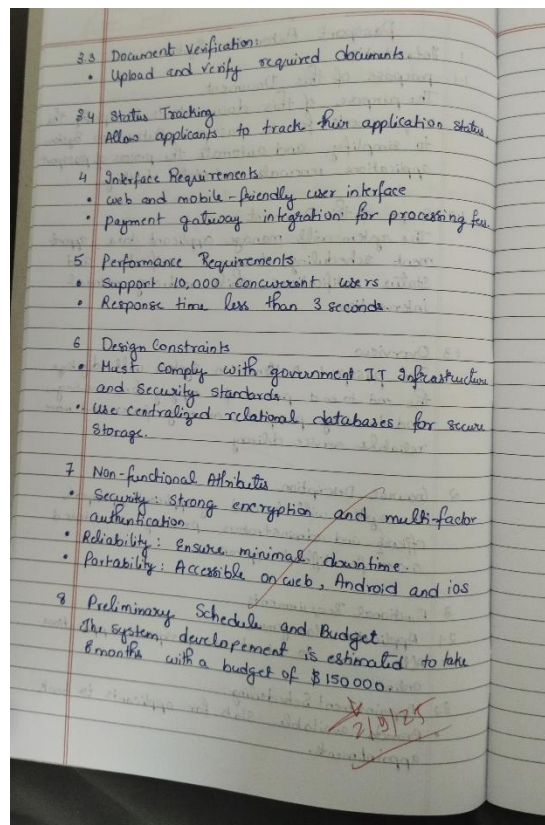 3.3 Document Verification:
• Upload and verify required documents.
3.4 Status Tracking
Allow applicants to track their application status
4 Interface Requirements
• web and mobile-friendly user interface
• Payment gateway integration for processing fees
5 Performance Requirements
• Support 10,000 concurrent users
• Response time less than 3 seconds.
6 Design Constraints
• Must comply with government IT Infrastructure
and security standards.
• use centralized relational databases for secure
storage.
7 Non-functional Attributes
• Security: Strong encryption and multi-factor
authentication
• Reliability: Ensure minimal downtime.
• Portability: Accessible on web, Android and ios
8 Preliminary Schedule and Budget
The System developement is estimated to take
8 months with a budget of $150000.
2/9/25